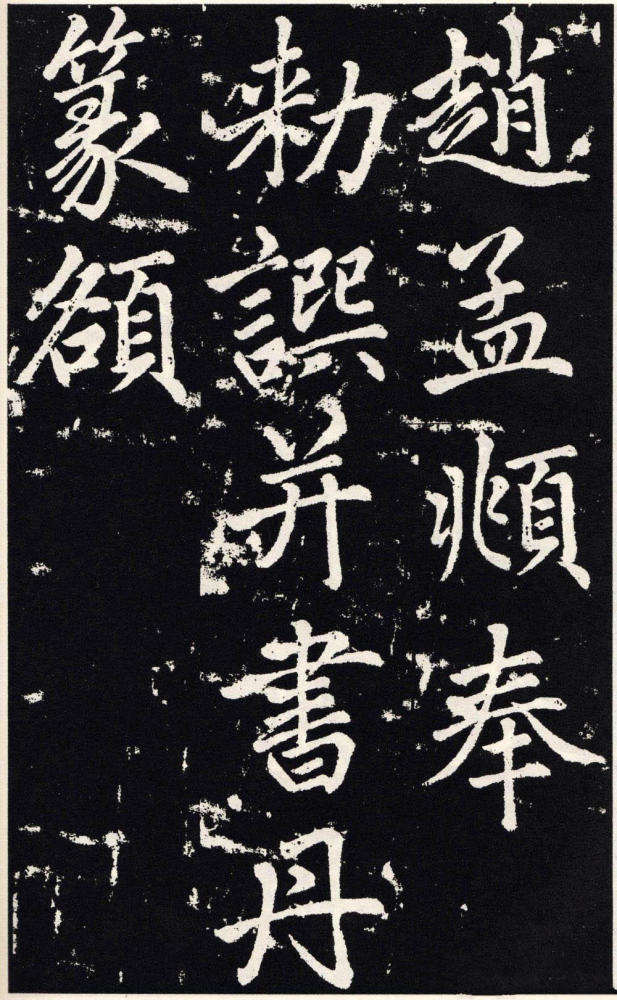 趙孟頫奉
勑譔并書丹
篆額